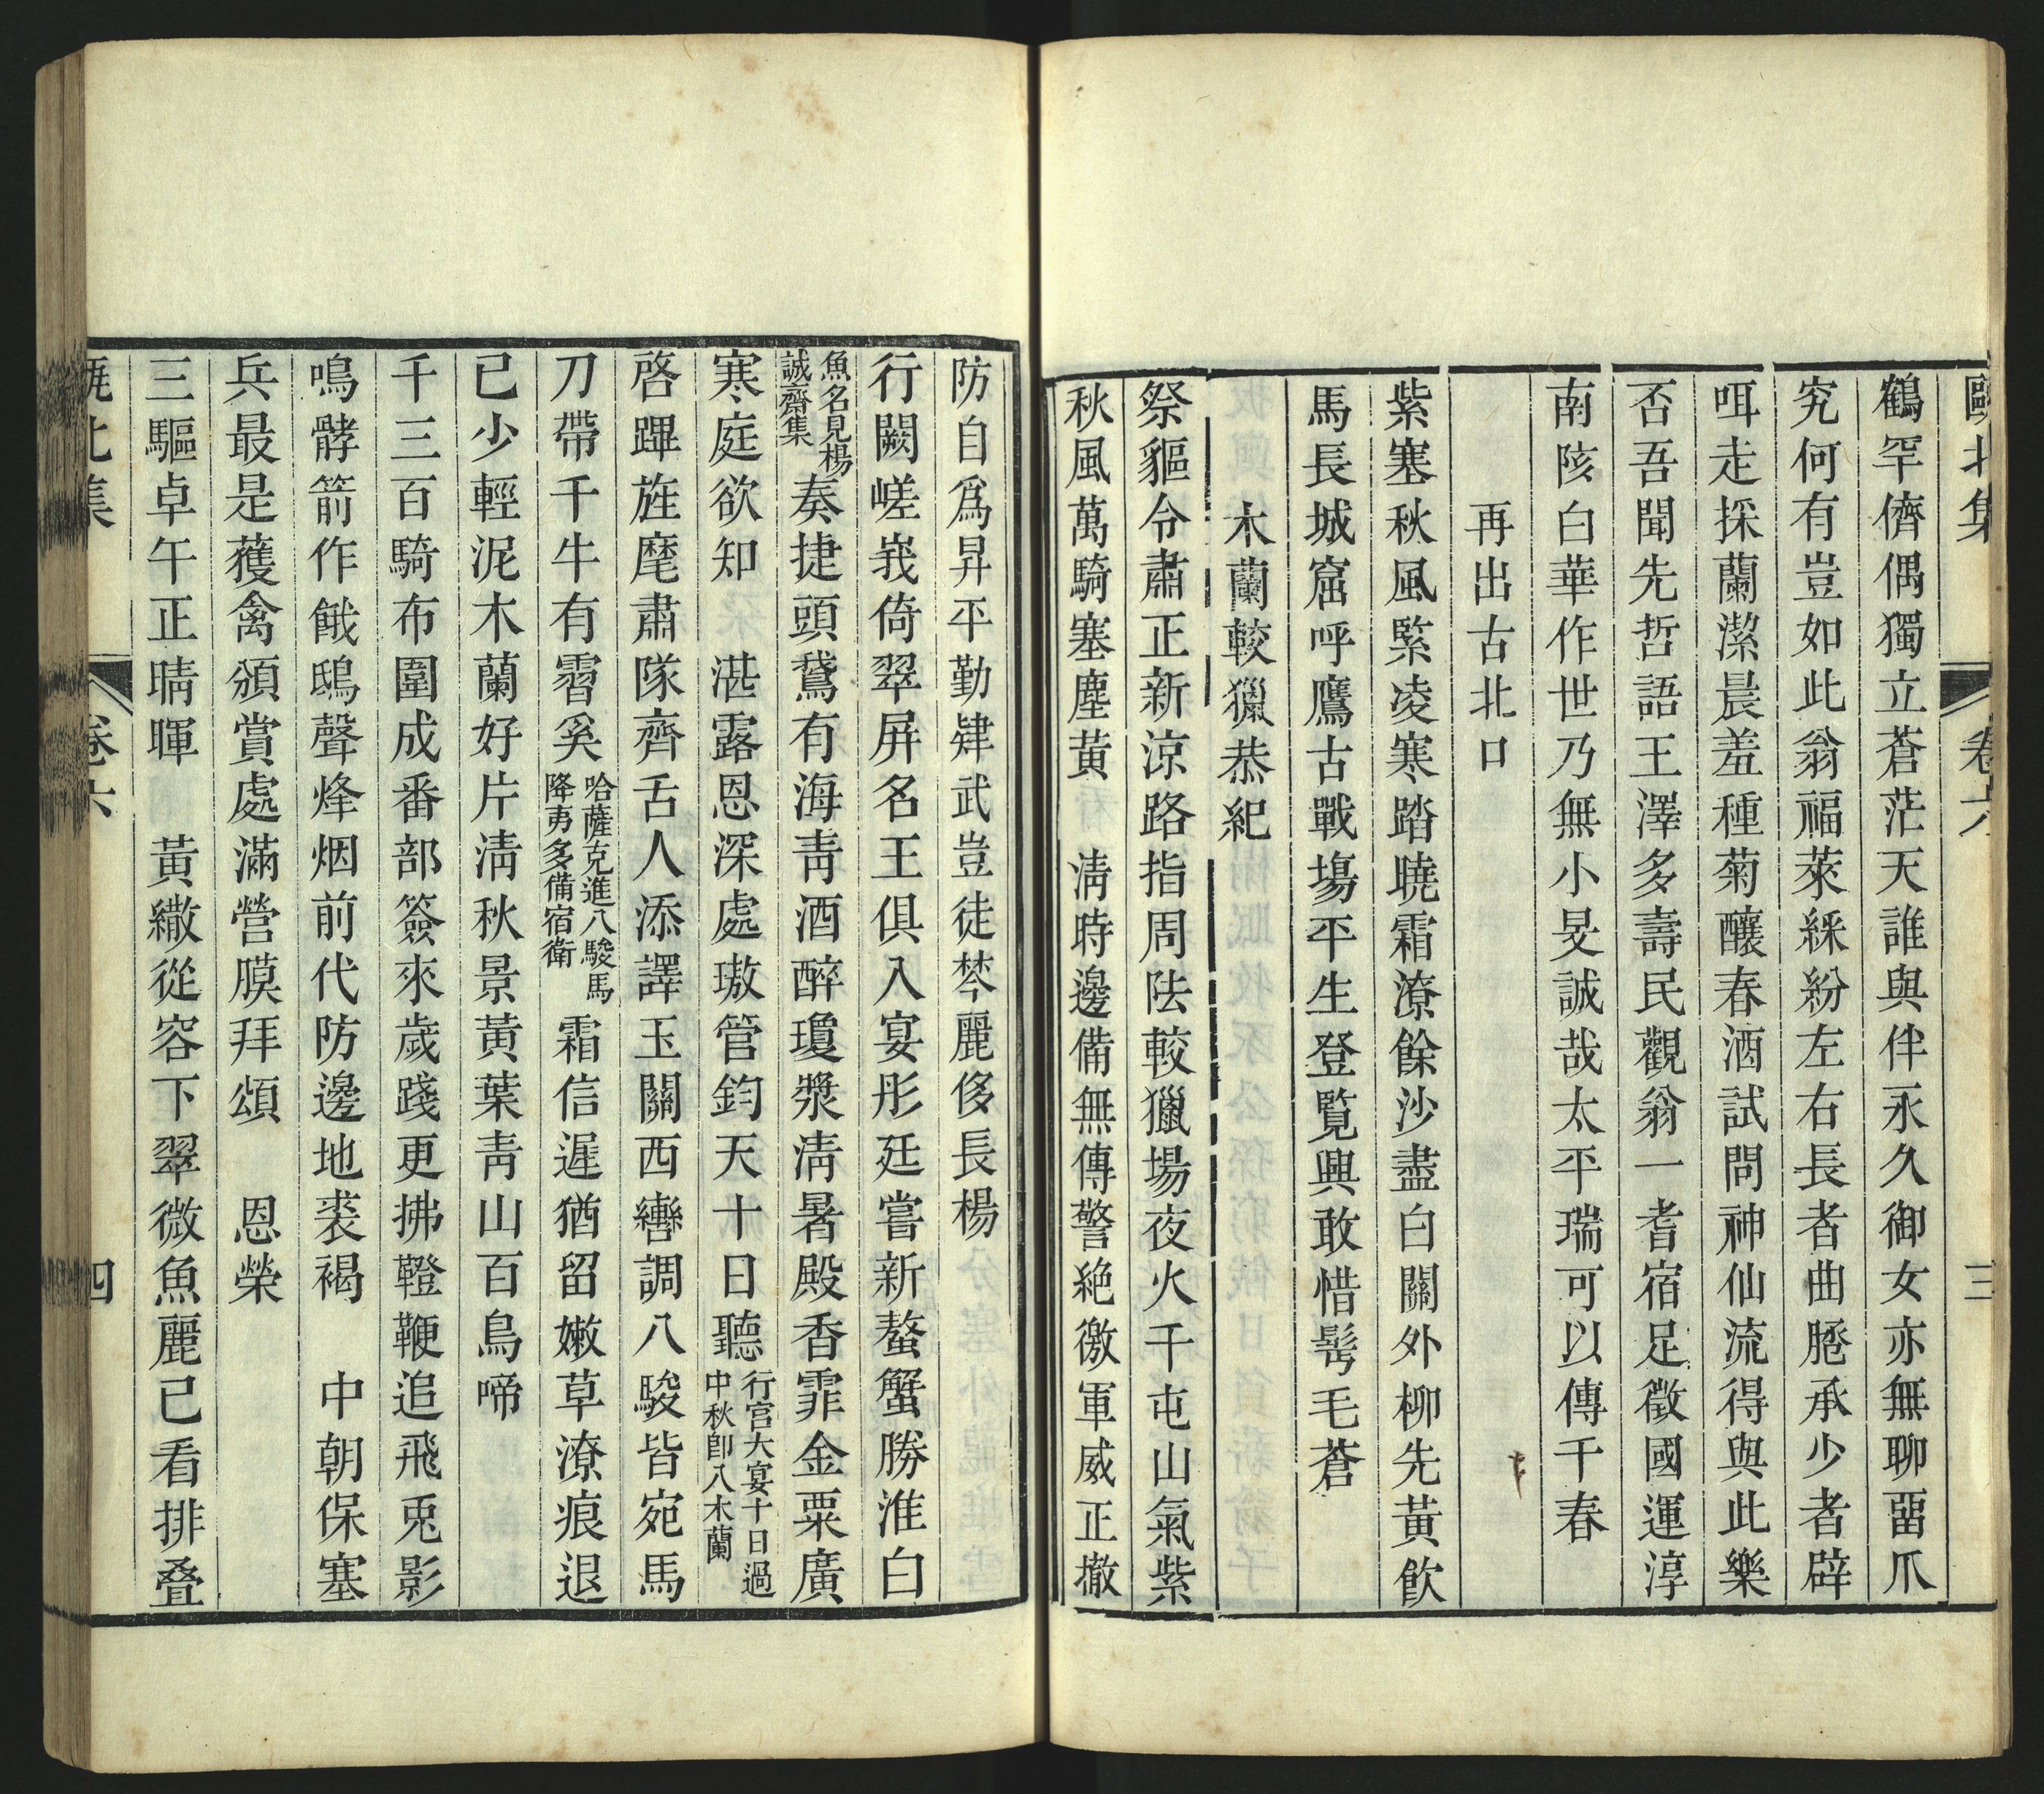 甌北集 卷六 三
鶴罕儕偶獨立蒼茫天誰與伴永久御女亦無聊畱爪
究何有豈如此翁福萊綵紛左右長者曲䠆承少者辟
咡走採蘭潔晨羞種菊釀春酒試問神仙流得與此樂
否吾聞先哲語王澤多壽民觀翁一耆宿足徵國運淳
南陔白華作世乃無小旻誠哉太平瑞可以傳千春
再出古北口
紫塞秋風緊凌寒踏曉霜潦餘沙盡白關外柳先黃飲
馬長城窟呼鷹古戰場平生登覽興敢惜髩毛蒼
木蘭較獵恭紀
祭貙令肅正新涼路指周阹較獵場夜火千屯山氣紫
秋風萬騎塞塵黃 淸時邊備無傳警絕徼軍威正撤
防自爲昇平勤肄武豈徒棽麗侈長楊
行闕嵯峩倚翠屛名王俱入宴彤廷嘗新螯蟹勝淮白
魚名見楊
誠齋集
奏捷頭鵞有海靑酒醉瓊漿淸暑殿香霏金粟廣
寒庭欲知 湛露恩深處璈管鈞天十日聽
行宮大宴十日過
中秋卽入木蘭
啓蹕旌麾肅隊齊舌人添譯玉關西轡調八駿皆宛馬
刀帶千牛有霫奚
哈薩克進八駿馬
降夷多備宿衛
霜信遲猶留嫩草潦痕退
已少輕泥木蘭好片淸秋景黃葉靑山百鳥啼
千三百騎布圍成番部簽來歲踐更拂鞚鞭追飛兎影
鳴髇箭作餓鴟聲烽烟前代防邊地裘褐 中朝保塞
兵最是獲禽頒賞處滿營膜拜頌 恩榮
三驅卓午正晴暉 黃繖從容下翠微魚麗已看排叠
甌北集 卷六 四